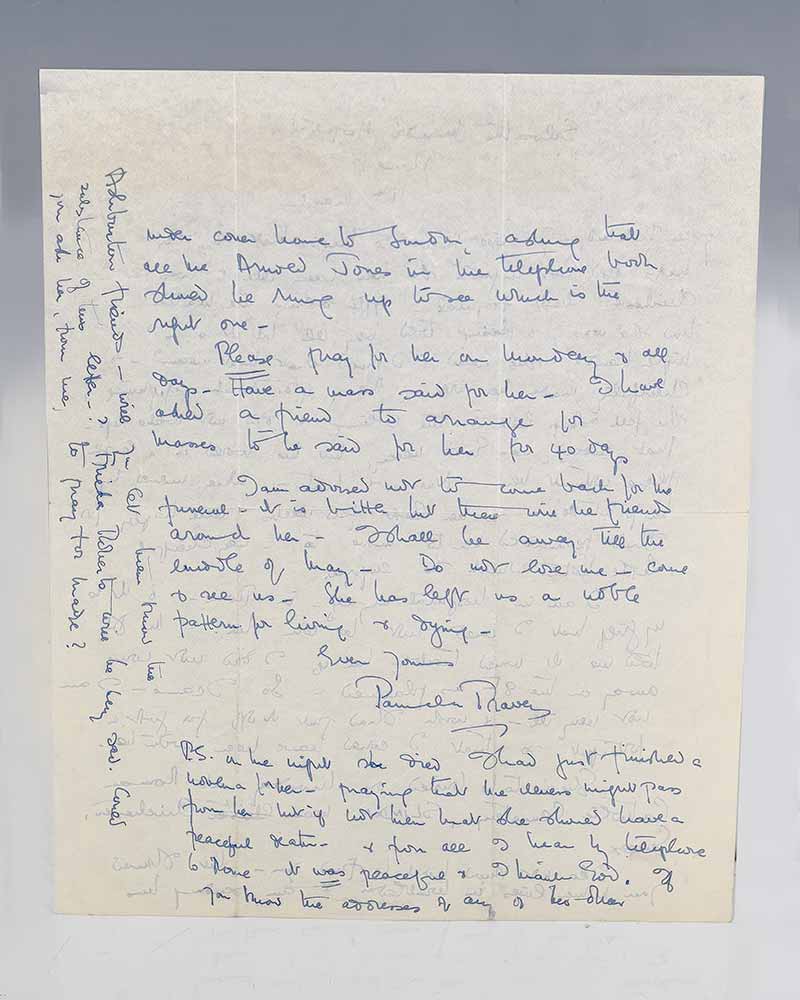 under cover home to London, asking that
all the Arnold Jones in the telephone book
should be rung up to see which is the
right one -
Please pray for her on Monday & all
days - Have a mass said for her - I have
asked a friend to arrange for
masses to be said for her for 40 days
I am advised not to come back for the
funeral - it is bitter but there will be friends
around her - I shall be away till the
middle of May - Do not lose me - come
& see us - She has left us a noble
pattern for living & dying -
Ever yours
Pamela Travers
P.S. On the night she died I had just finished a
novena for her - praying that the illness might pass
from her but if not then that she should have a
peaceful death - & from all I hear by telephone
to Rome - it was peaceful & I thank God. If
you know the addresses of any of her other
Ashburton friends - will you let them know the
substance of this letter - ? Frieda Roberts will be very sad. Could
you ask her, from me, to pray for Madge?